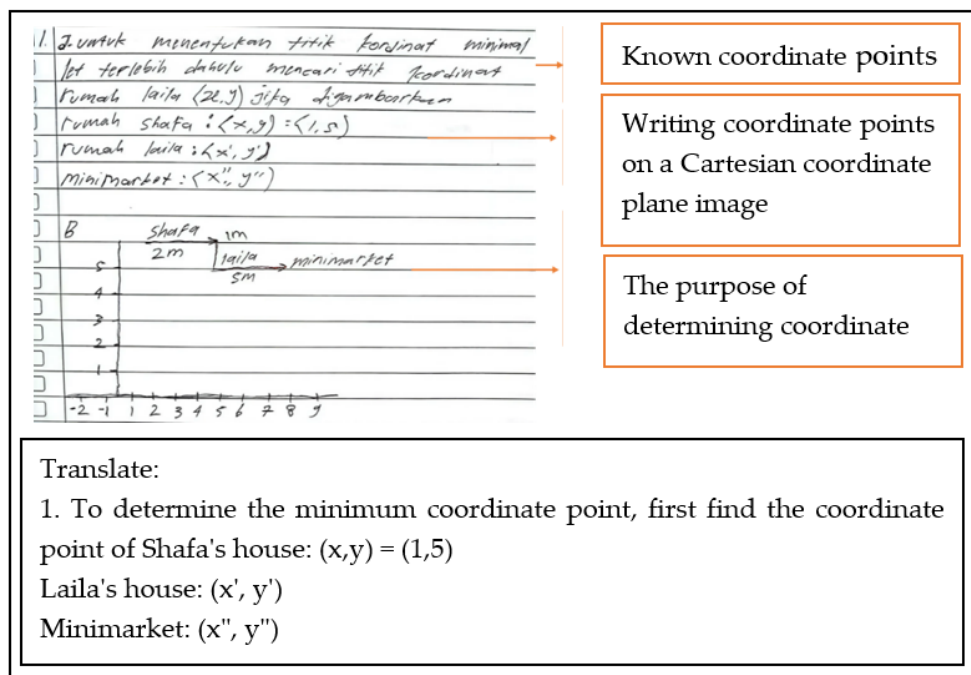 1. J. untuk menentukan titik kordinat minimal
let terlebih dahulu mencari titik kordinat
rumah laila (x,y) jika digambarkan
rumah shafa : (x,y) = (1,5)
rumah laila : (x', y')
minimarket : (x'', y'')
B shafa 1m
2m laila minimarket
5 5m
4
3
2
1
-2 -1 1 2 3 4 5 6 7 8 9
Known coordinate points
Writing coordinate points
on a Cartesian coordinate
plane image
The purpose of
determining coordinate
Translate:
1. To determine the minimum coordinate point, first find the coordinate
point of Shafa's house: (x,y) = (1,5)
Laila's house: (x', y')
Minimarket: (x", y")